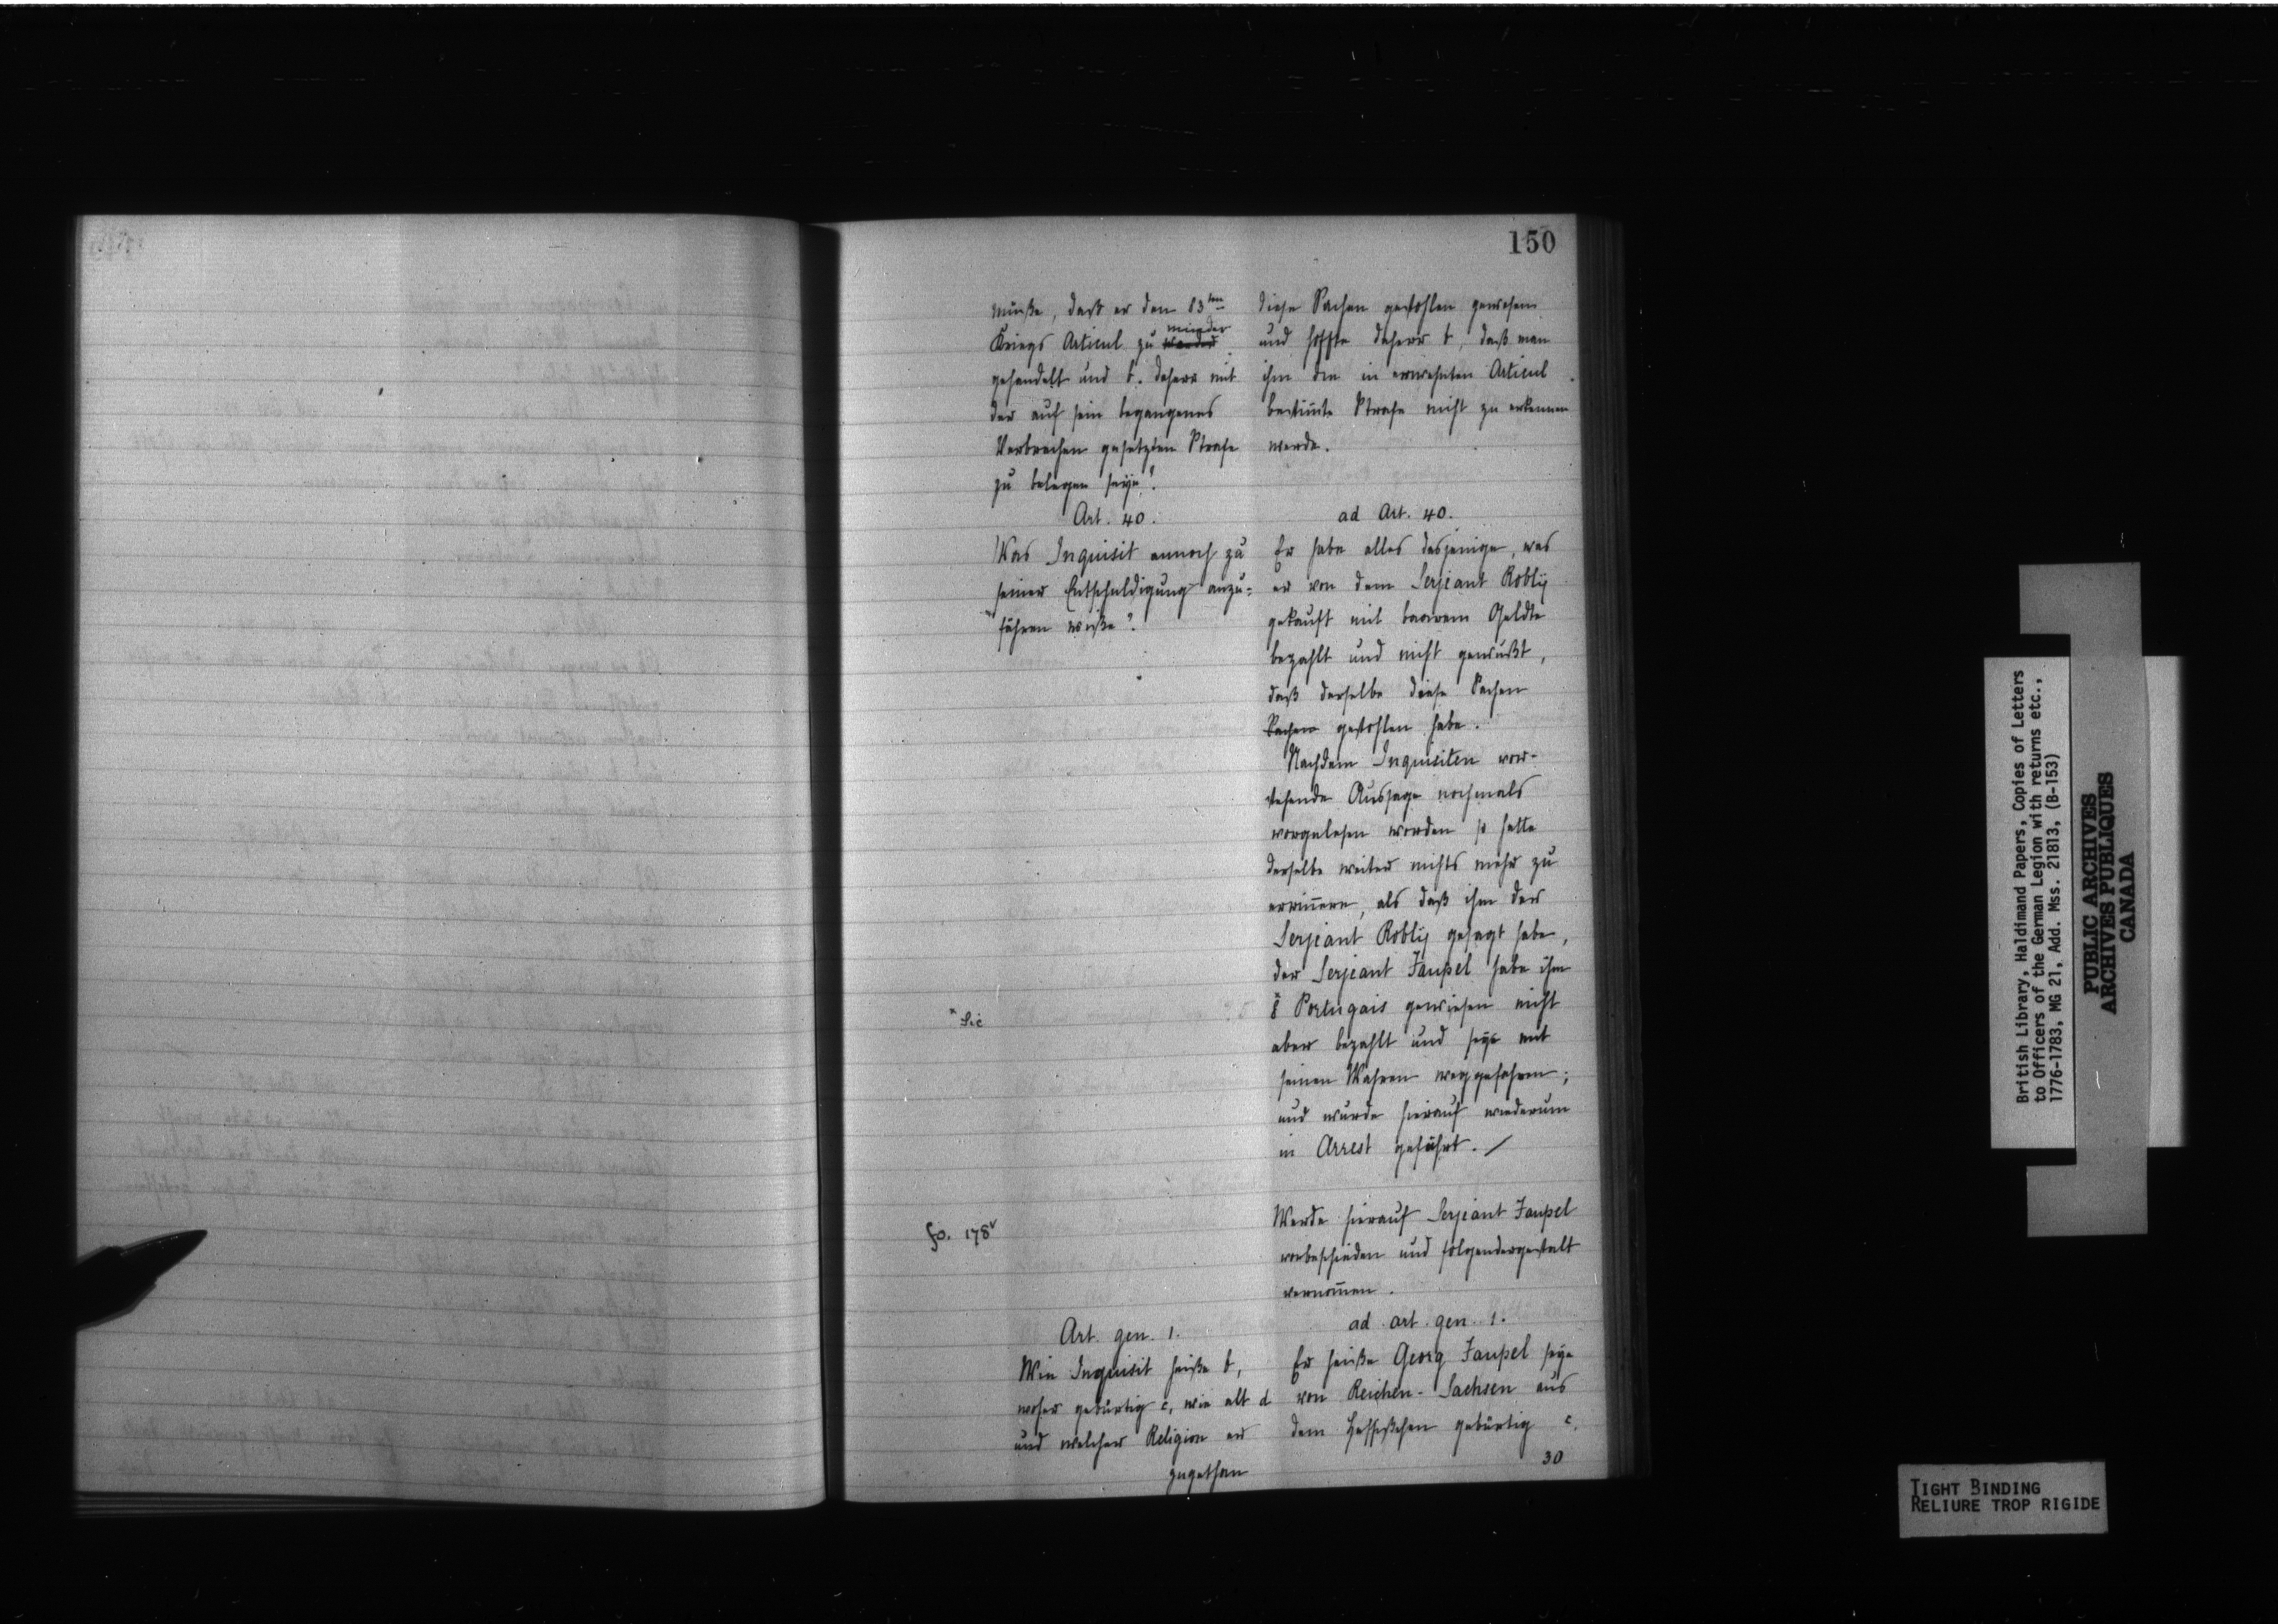 150
müße, daß er den 83ten
Kriegs Articul zu wieder
gehandelt und b. dahero mit
der auf sein begangenes
Verbrechen gesetzten Strafe
zu belegen seye?
Art. 40.
Was Inquisit annoch zu
seiner Entschuldigung anzu=
führen wiße?
diese Sachen gestohlen gewesen
und hoffte dahero b, daß man
ihm die in erwehnten Articul
bestim̄te Strafe nicht zu erkennen
werde.
ad Art. 40.
Er habe alles dasjenige, was
er von dem Serjeant Robly
gekauft mit baarem Geldte
bezahlt und nicht gewußt,
daß derselbe diese Sachen
Sachen gestohlen habe.
Nachdem Inquisiten vor-
stehende Aussage nochmals
vorgelesen worden so hatte
derselbe weiter nichts mehr zu
erin̄ern, als daß ihm der
Serjeant Robly gesagt habe,
der Serjeant Faupel habe ihm
* 8 Portugais gewiesen nicht
aber bezahlt und seye mit
seinen Wahren weggefahren;
und wurde hierauf wiederum
in Arrest geführt. /
* Sic
fo. 178v
Werde hierauf Serjeant Faupel
vorbeschieden und folgendergestalt
vernom̄en.
Art. gen. 1.
Wie Inquisit heiße b,
woher gebürtig c, wie alt d
und welcher Religion er
zugethan
ad art. gen. 1.
Er heiße Georg Faupel seye
von Reichen-Sachsen aus
dem Heßischen gebürtig c.
30
British Library, Haldimand Papers, Copies of Letters
to Officers of the German Legion with returns etc.,
1776-1783, MG 21, Add. Mss. 21813, (B-153)
PUBLIC ARCHIVES
ARCHIVES PUBLIQUES
CANADA
TIGHT BINDING
RELIURE TROP RIGIDE